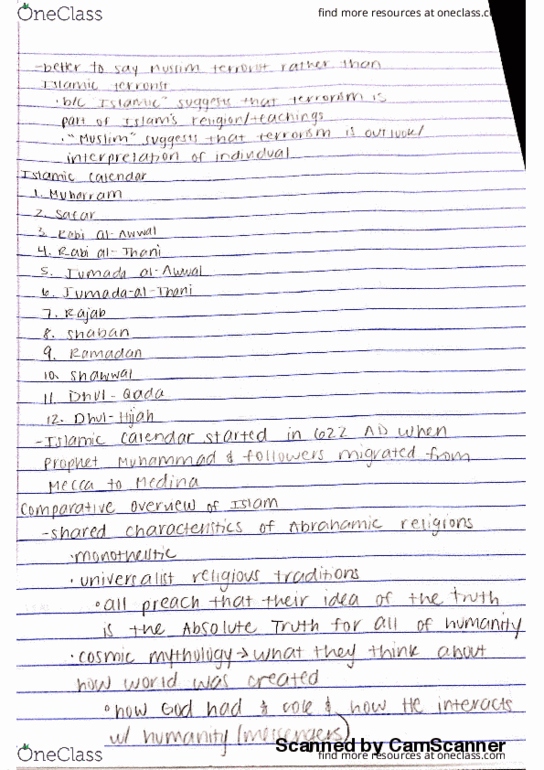 OneClass
find more resources at oneclass.co
-better to say Muslim terrorist rather than
Islamic terrorist
• b/c "Islamic" suggests that terrorism is
part of Islam's religion/teachings
• "Muslim" suggests that terrorism is outlook/
interpretation of individual
Islamic calendar
1. Muharram
2. Safar
3. Rabi al-Awwal
4. Rabi al-Thani
5. Jumada al-Awwal
6. Jumada-al-Thani
7. Rajab
8. Shaban
9. Ramadan
10. Shawwal
11. Dhul-Qada
12. Dhul-Hijah
-Islamic calendar started in 622 AD when
Prophet Muhammad & followers migrated from
Mecca to Medina
Comparative overview of Islam
-shared characteristics of Abrahamic religions
• monotheistic
• universalist religious traditions
• all preach that their idea of the truth
is the Absolute Truth for all of humanity
• cosmic mythology → what they think about
how world was created
• how God had a role & how He interacts
w/ humanity (messengers)
Scanned by CamScanner
OneClass
find more resources at oneclass.com